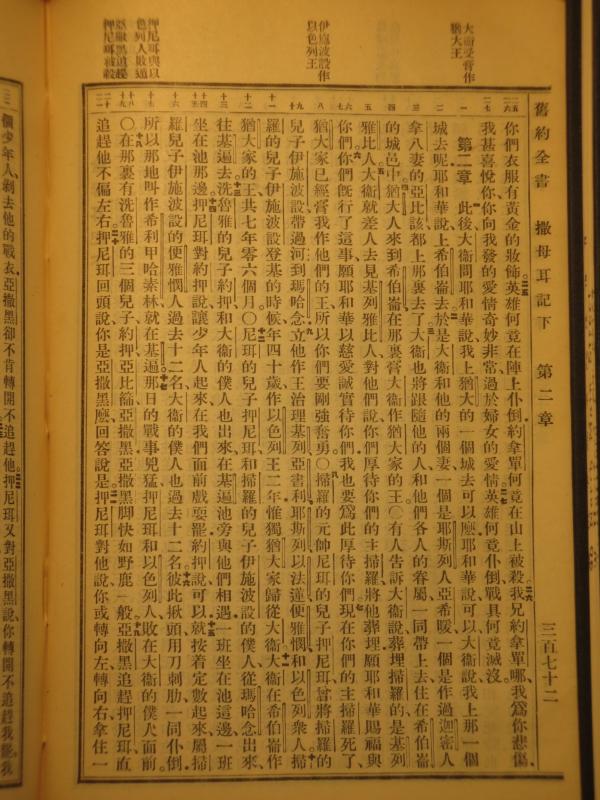 舊約全書 撒母耳記下 第二章 三百七十二
大衛受膏作
猶大王
伊施波設作
以色列王
押尼珥與以
色列人敗逃
亞撒黑追趕
押尼珥被殺
你們衣服有黃金的妝飾英雄何竟在陣上仆倒約拿單何竟在山上被殺我兄約拿單哪我爲你悲傷
我甚喜悅你你向我發的愛情奇妙非常過於婦女的愛情英雄何竟仆倒戰具何竟滅沒
第二章 此後大衛問耶和華說我上猶大的一個城去可以麽耶和華說可以大衛說我上那一個
城去呢耶和華說上希伯崙去於是大衛和他的兩個妻一個是耶斯列人亞希暖一個是作過迦密人
拿八妻的亞比該都上那裏去了大衛也將跟隨他的人和他們各人的眷屬一同帶上去住在希伯崙
的城邑中猶大人來到希伯崙在那裏膏大衛作猶大家的王〇有人告訴大衛說葬埋掃羅的是基列
雅比人大衛就差人去見基列雅比人對他們說你們厚待你們的主掃羅將他葬埋願耶和華賜福與
你們你們旣行了這事願耶和華以慈愛誠實待你們我也要爲此厚待你們現在你們的主掃羅死了
猶大家已經膏我作他們的王所以你們要剛強奮勇〇掃羅的元帥尼珥的兒子押尼珥曾將掃羅的
兒子伊施波設帶過河到瑪哈念立他作王治理基列亞書利耶斯列以法蓮便雅憫和以色列衆人掃
羅的兒子伊施波設登基的時候年四十歲作以色列王二年惟獨猶大家歸從大衛大衛在希伯崙作
猶大家的王共七年零六個月〇尼珥的兒子押尼珥和掃羅的兒子伊施波設的僕人從瑪哈念出來
往基遍去洗魯雅的兒子約押和大衛的僕人也出來在基遍池旁與他們相遇一班坐在池這邊一班
坐在池那邊押尼珥對約押說讓少年人起來在我們面前戲耍罷約押說可以就按着定數起來屬掃
羅兒子伊施波設的便雅憫人過去十二名大衛的僕人也過去十二名彼此揪頭用刀刺肋一同仆倒
所以那地叫作希利甲哈素林就在基遍那日的戰事兇猛押尼珥和以色列人敗在大衛的僕人面前
〇在那裏有洗魯雅的三個兒子約押亞比篩亞撒黑亞撒黑脚快如野鹿一般亞撒黑追趕押尼珥直
追趕他不偏左右押尼珥回頭說你是亞撒黑麽回答說是押尼珥對他說你或轉向左轉向右拿住一
個少年人剝去他的戰衣亞撒黑卻不肯轉開不追趕他押尼珥又對亞撒黑說你轉開不追趕我罷我